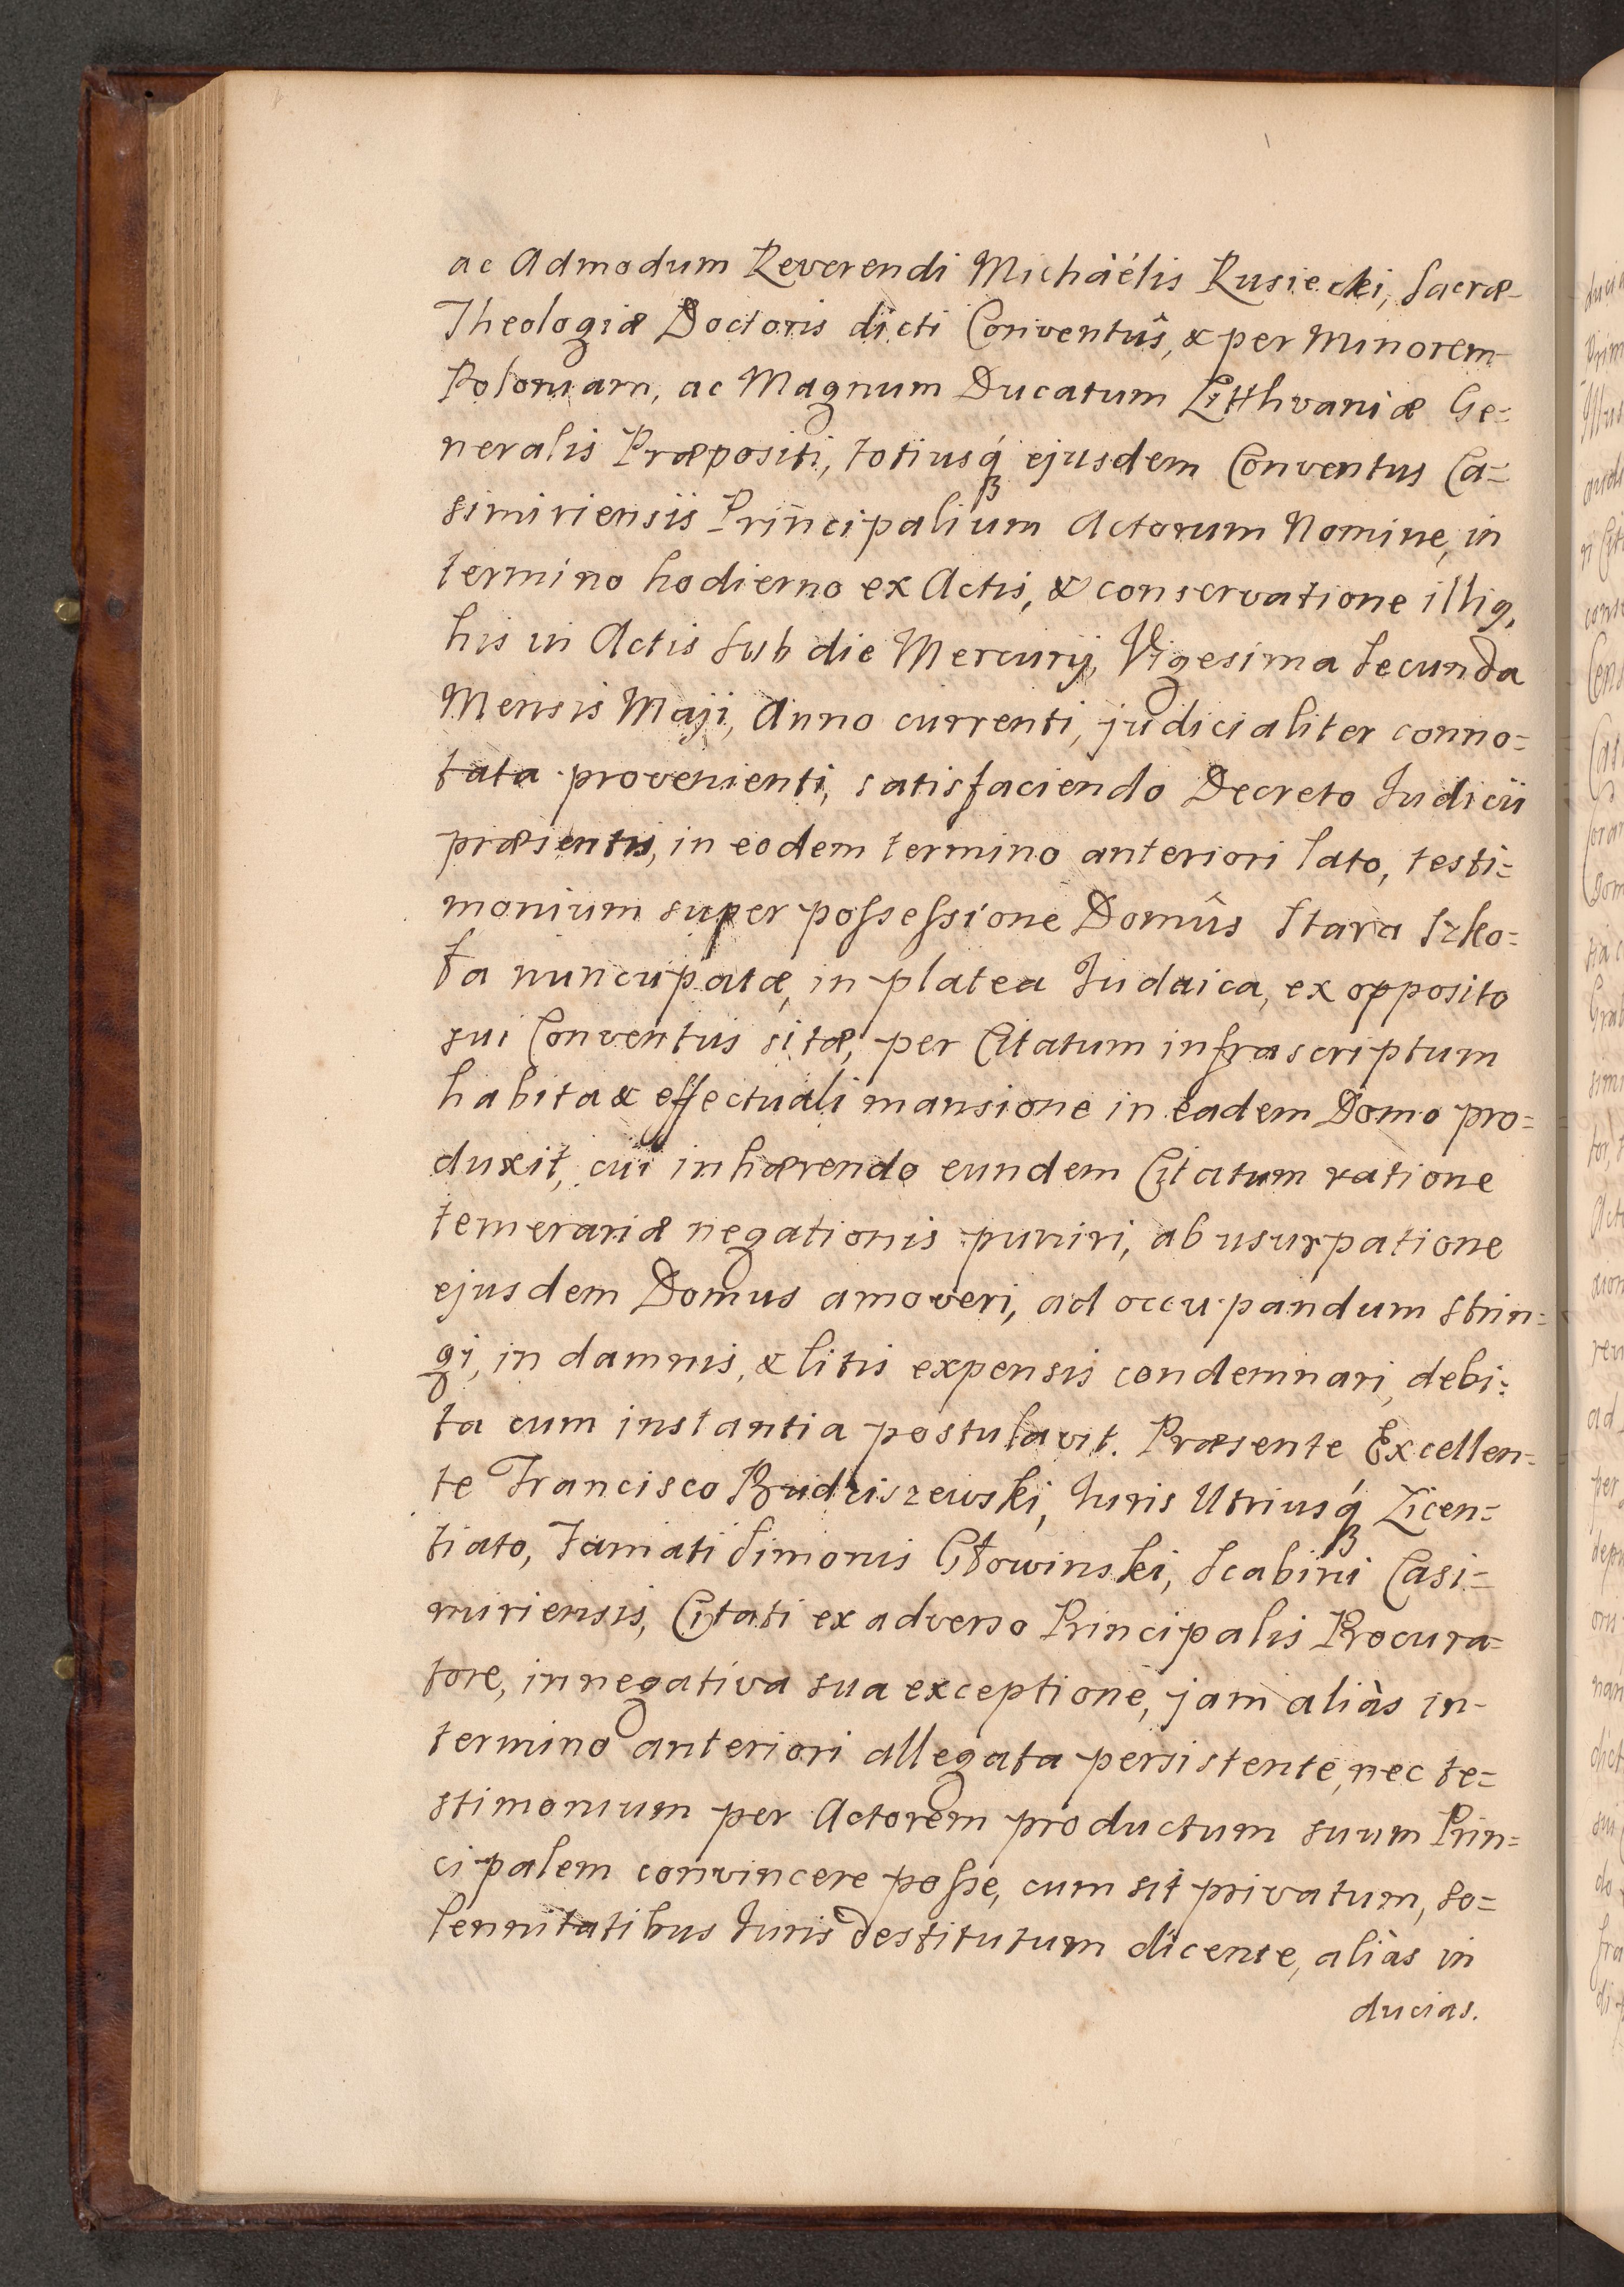 ac Admodum Reverendi Michäélis Rusiecki, Sacræ
Theologiæ Doctoris dicti Conventûs, & per Minorem
Poloniam, ac Magnum Ducatum Litthvaniæ Ge=
neralis Præpositi, totiusq́ꝫ ejusdem Conventus Ca=
simiriensis Principalium Actorum Nomine, in
termino hodierno ex Actis, & conservatione illiq,
his in Actis Sub die Mercurij, Vigesima Secunda
Mensis Maji, Anno currenti, judicialiter conno=
tata provenienti, satisfaciendo Decreto Judicii
præsentis, in eodem termino anteriori lato, testi=
monium super possessione Domûs Stara Szko=
ła nuncupatæ, in platea Judaica, ex opposito
sui Conventus sitæ, per Citatum infrascriptum
habita & effectuali mansione in eadem Domo pro=
duxit, cui inhærendo eundem Citatum ratione
temerariæ negationis puniri, ab usurpatione
ejusdem Domus amoveri, ad occupandum strin=
gi, in damnis, & litis expensis condemnari, debi=
ta cum instantia postulavit. Præsente Excellen=
te Francisco Budziszewski, Juris Utriusq́ꝫ Licen=
tiato, Famati Simonis Głowinski, Scabini Casi=
miriensis, Citati ex adverso Principalis Procura=
tore, in negativa sua exceptione, jam aliàs in-
termino anteriori allegata persistente, nec te=
stimonium per Actorem productum suum Prin=
cipalem convincere posse, cum sit privatum, so=
lennitatibus Juris destitutum dicente, aliàs in
ducias.